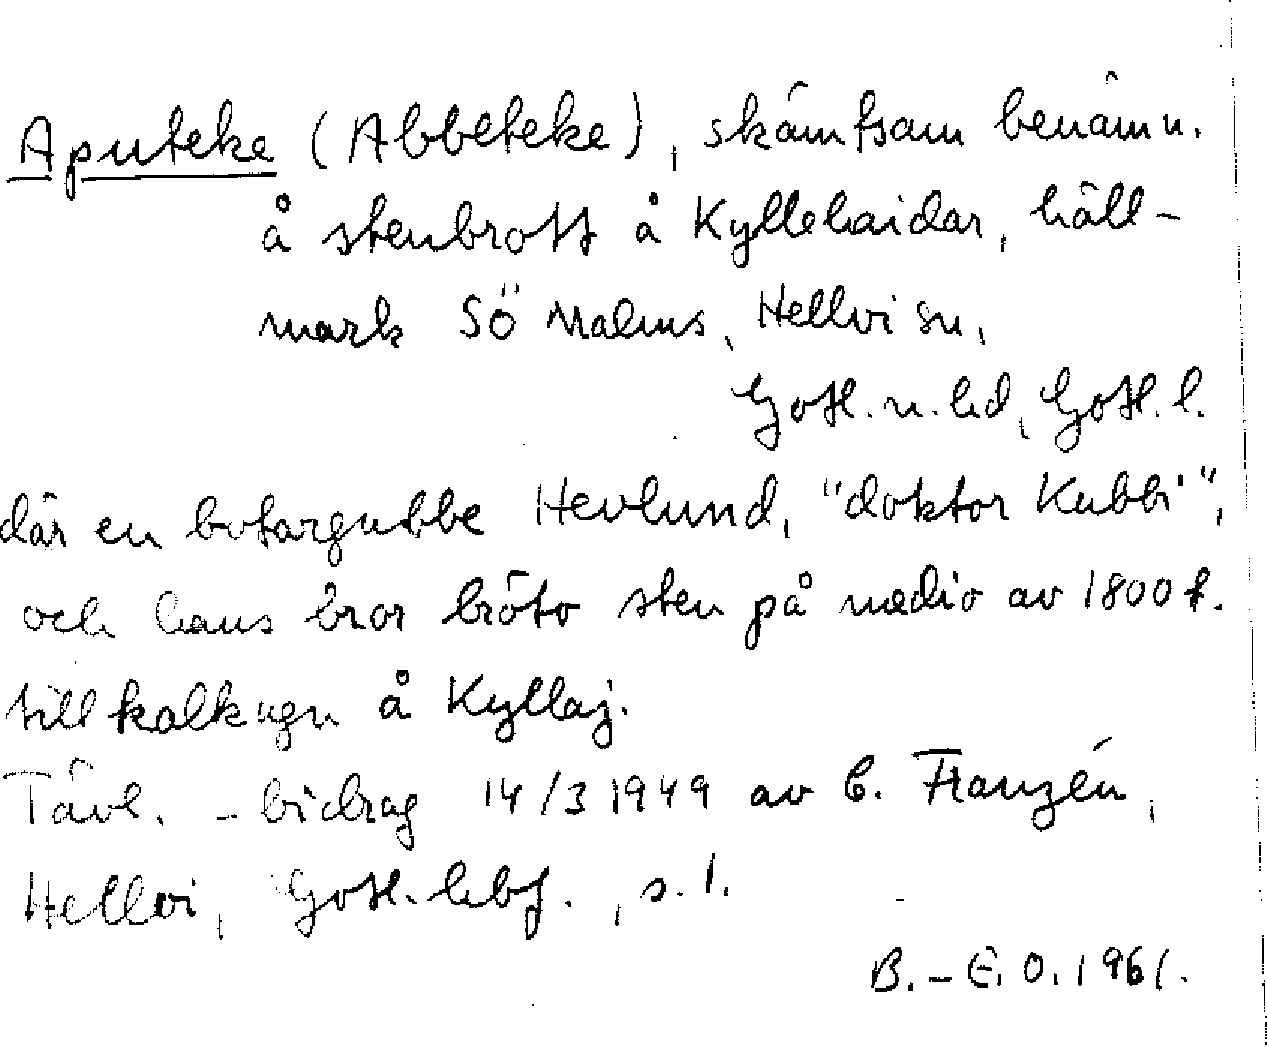 Aputeke (Abbeteke), skämtsam benämn.
å stenbrott å Kyllehaidar, häll-
mark SÖ Malms, Hellvi sn,
Gotl. n. hd, Gotl. l.
där en botargubbe Hevlund, "doktor Kubbi",
och hans bror bröto sten på medio av 1800 t.
till kalkugn å Kyllaj.
Tävl. - bidrag 14/3 1949 av C. Franzén,
Hellvi, Gotl. hbf., s. 1.
B.-E.O. 1961.